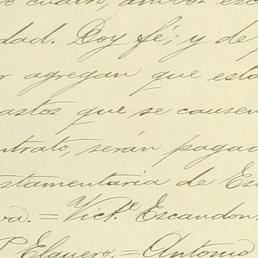 cuarto, ambos esc
dad. Doy fé; y de p
r agregan que esta
astos que se causen
ntrato, serán pagad
stamentaria de Es
va. = Vicᵗᵉ Escandon.
Elguero. = Antonio